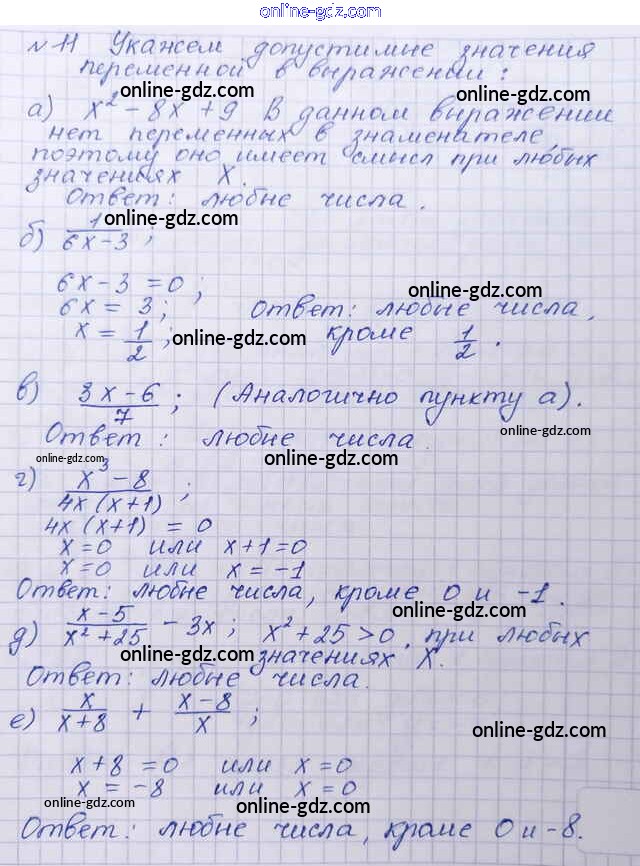 online-gdz.com
№ 11 Укажем допустимые значения
переменной в выражении:
online-gdz.com online-gdz.com
а) x² - 8x + 9 В данном выражении
нет переменных в знаменателе,
поэтому оно имеет смысл при любых
значениях X.
Ответ: любые числа.
online-gdz.com
б) 1/(6x-3);
6x - 3 = 0;
online-gdz.com
6x = 3; Ответ: любые числа,
x = 1/2; кроме 1/2.
online-gdz.com
в) (3x-6)/7; (Аналогично пункту а).
Ответ: любые числа.
online-gdz.com
online-gdz.com online-gdz.com
г) (x³-8)/(4x(x+1));
4x(x+1) = 0
x=0 или x+1=0
x=0 или x = -1
Ответ: любые числа, кроме 0 и -1.
online-gdz.com
д) (x-5)/(x²+25) - 3x; x²+25>0, при любых
online-gdz.com
значениях X.
Ответ: любые числа.
е) x/(x+8) + (x-8)/x;
online-gdz.com
x+8 = 0 или x = 0
x = -8 или x = 0
online-gdz.com online-gdz.com
Ответ: любые числа, кроме 0 и -8.